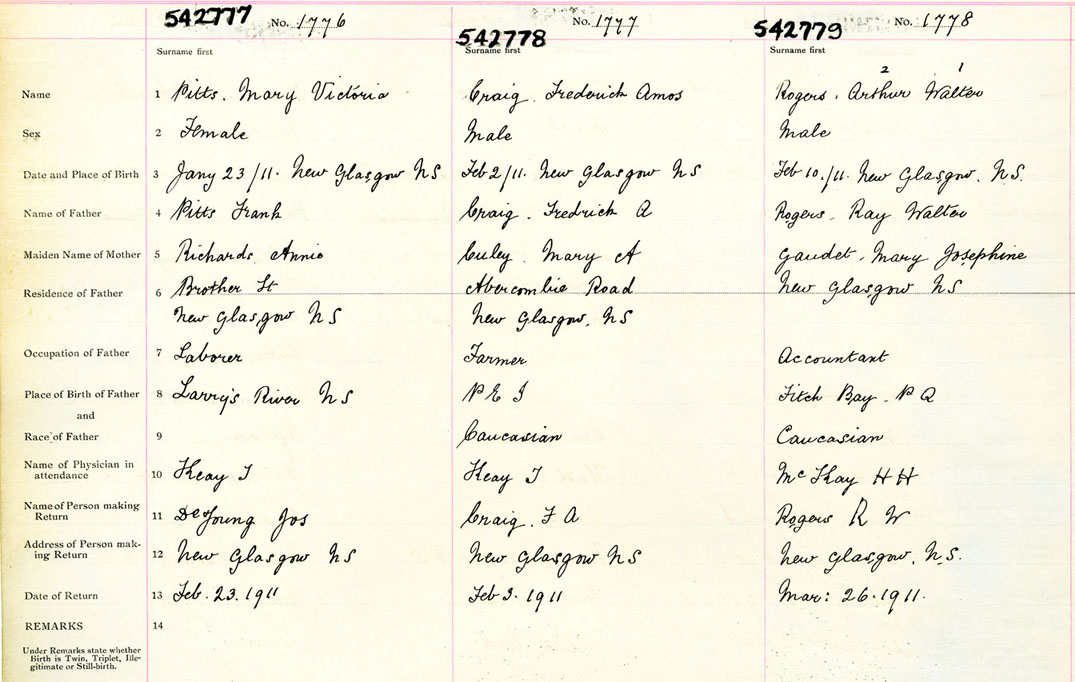 542777 No. 1776 542778 No. 1777 542779 No. 1778
Surname first Surname first Surname first
2 1
Name 1 Pitts. Mary Victoria Craig. Frederick Amos Rogers. Arthur Walter
Sex 2 Female Male Male
Date and Place of Birth 3 Jany 23/11. New Glasgow NS Feb 2/11. New Glasgow NS Feb 10./11. New Glasgow. N.S.
Name of Father 4 Pitts Frank Craig. Fredrick A Rogers. Ray Walter
Maiden Name of Mother 5 Richards Annie Mary A Gaudet. Mary Josephine
Residence of Father 6 Brother St Abercombie Road New Glasgow NS
New Glasgow NS New Glasgow. NS
Occupation of Father 7 Laborer Farmer Accountant
Place of Birth of Father 8 Larry's River NS P E I Fitch Bay. P Q
and
Race of Father 9 Caucasian Caucasian
Name of Physician in
attendance 10 Keay T Keay T McKay H H
Name of Person making
Return 11 DeYoung Jos Craig. F A Rogers R W
Address of Person mak-
ing Return 12 New Glasgow NS New Glasgow NS New Glasgow. N.S.
Date of Return 13 Feb. 23. 1911 Feb 3. 1911 Mar: 26. 1911.
REMARKS 14
Under Remarks state whether
Birth is Twin, Triplet, Ille-
gitimate or Still-birth.